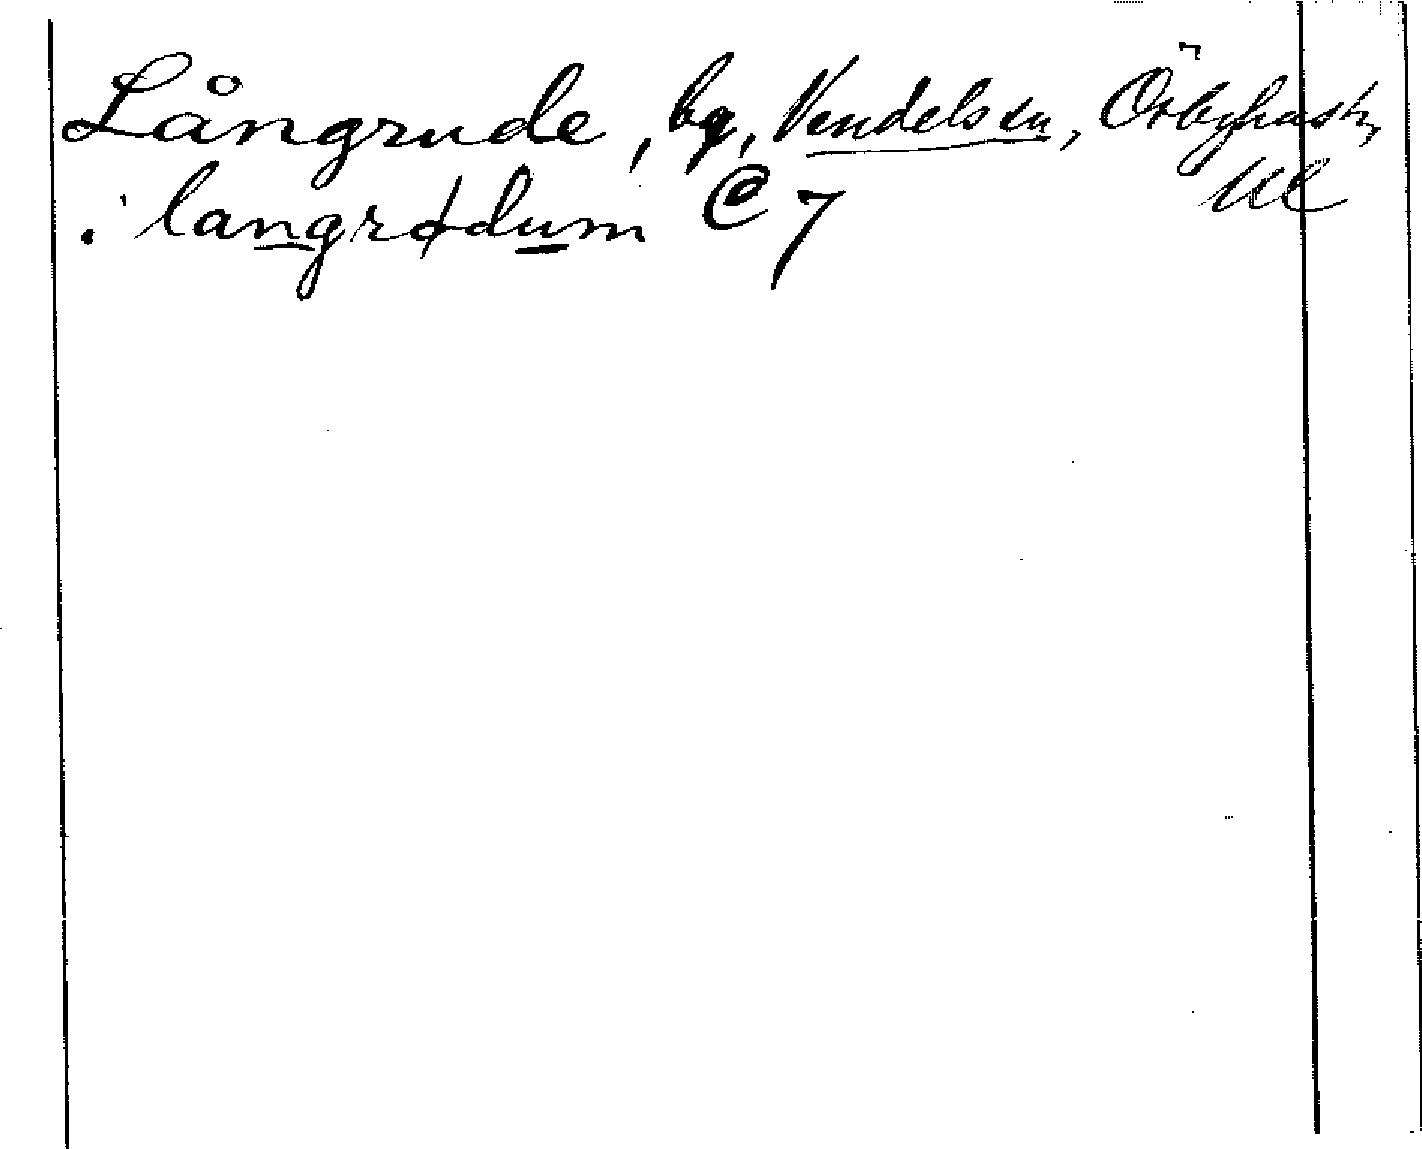 Långrude, by, Vendels sn, Örbyhus hd,
Ul
i langrødum C 7